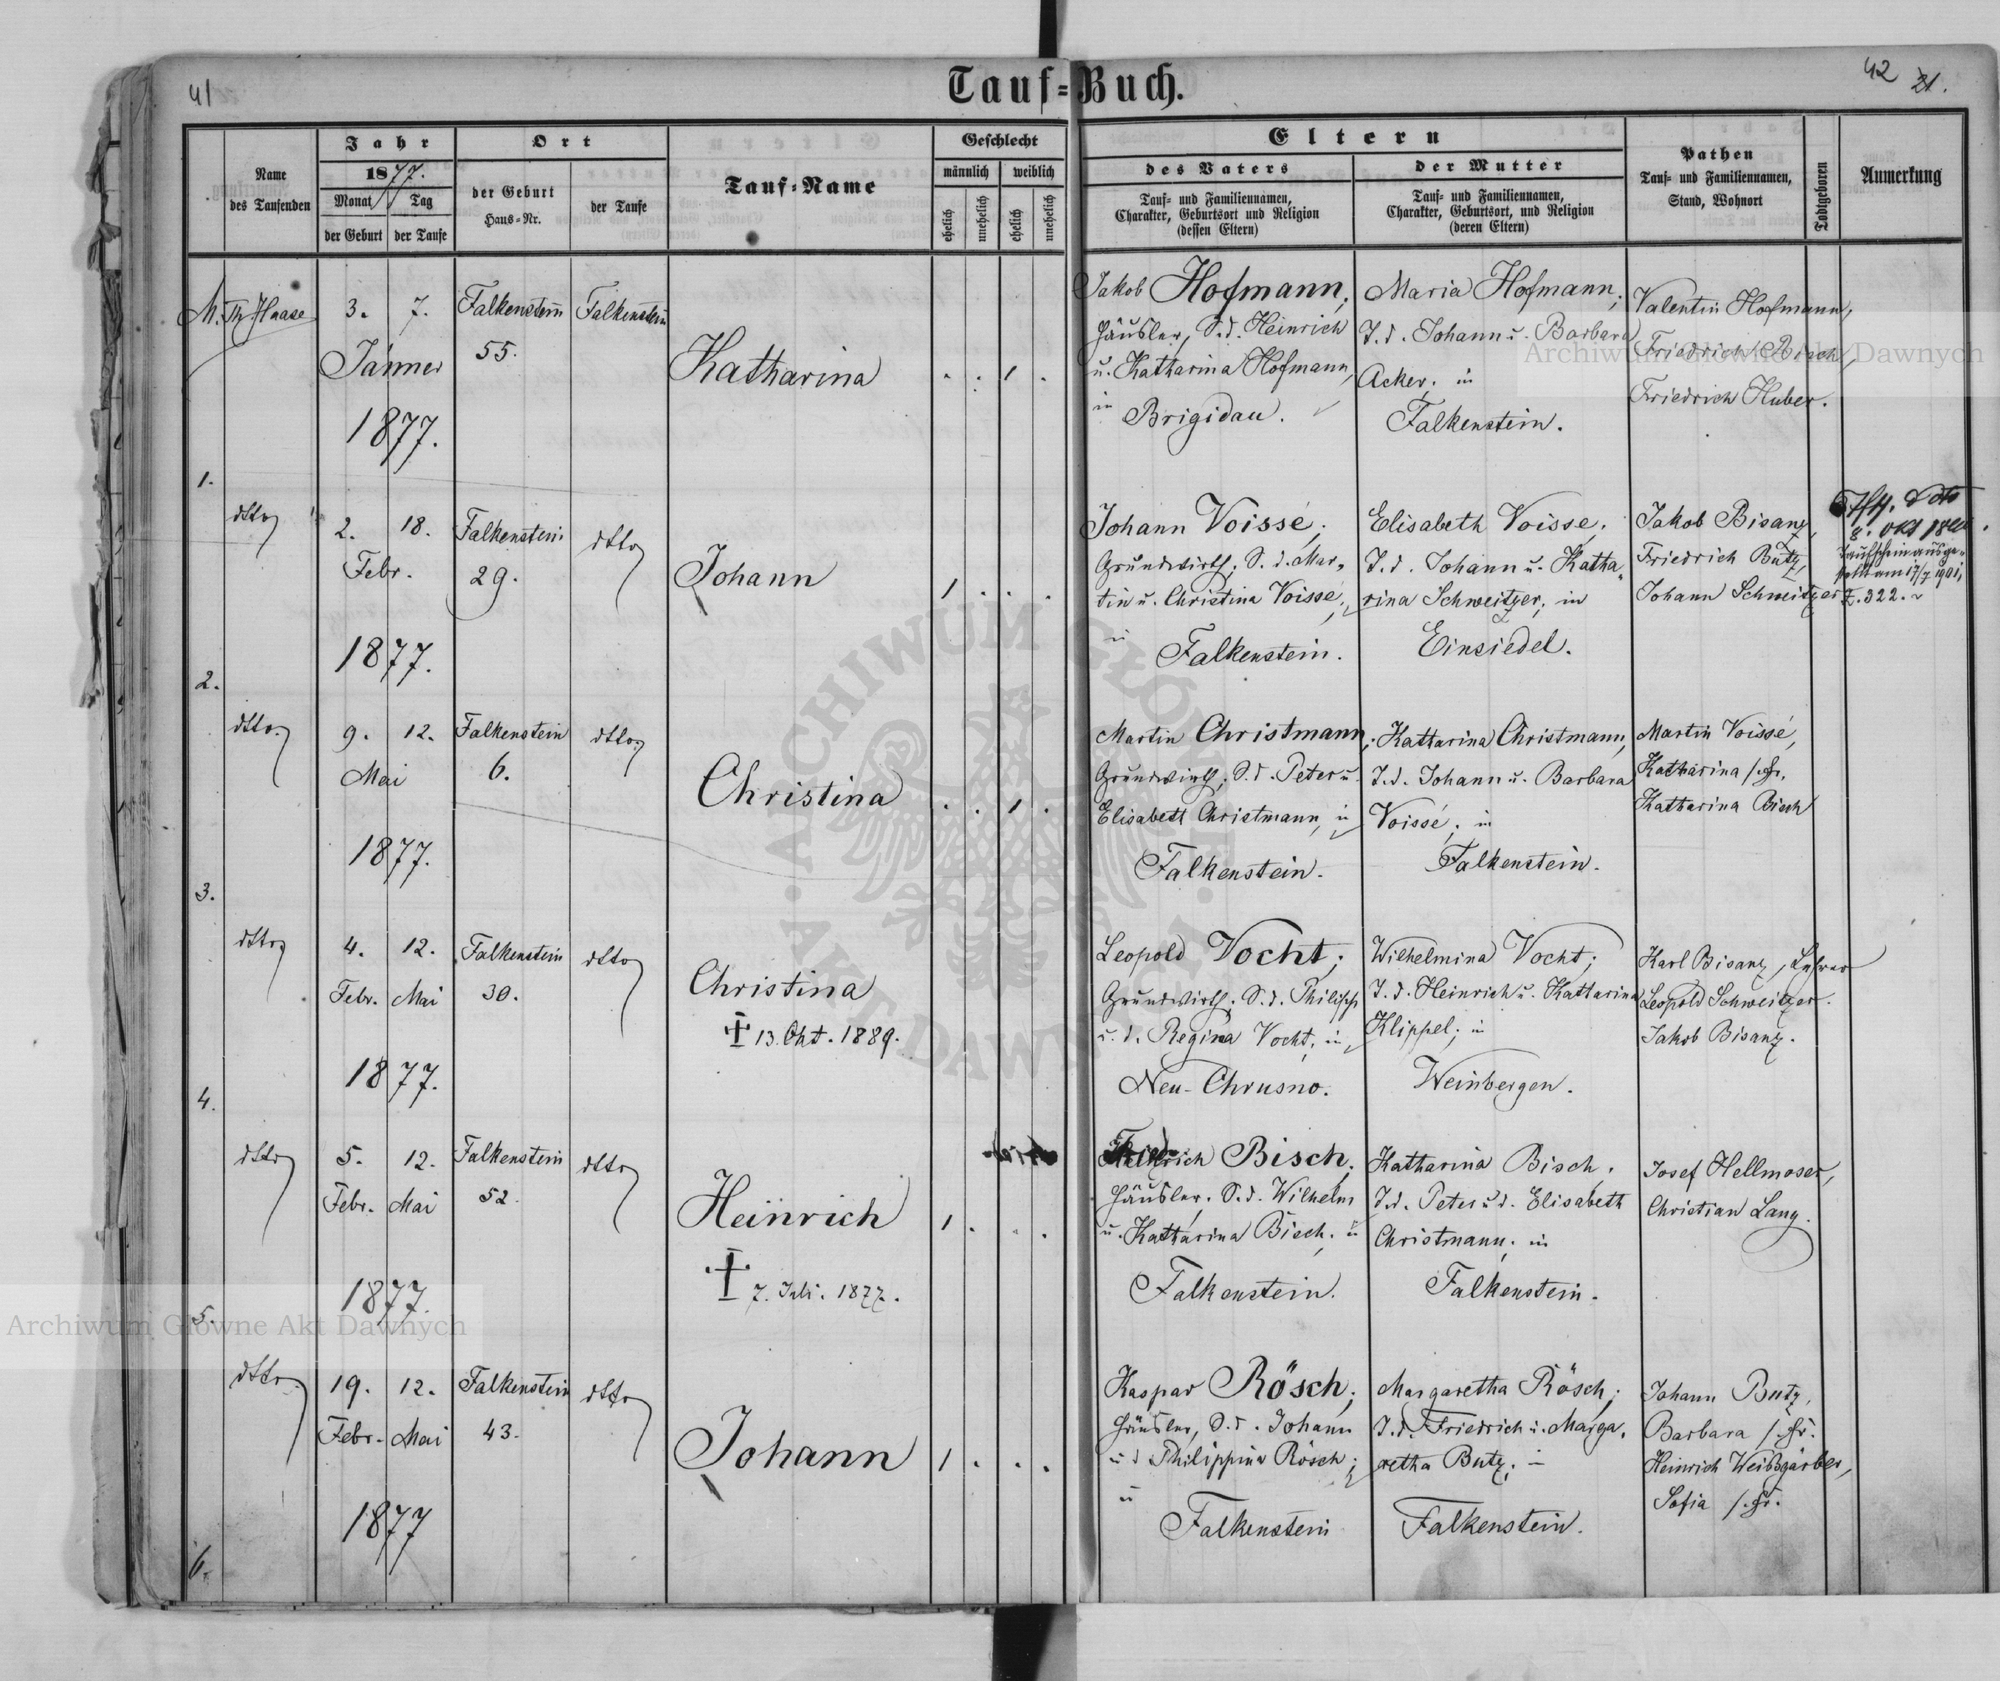 41
Tauf=Buch.
42
21.
Name
des Taufenden
Jahr
1877.
Monat
Tag
der Geburt
der Taufe
Ort
der Geburt
Haus=Nr.
der Taufe
Tauf=Name
Geschlecht
männlich
weiblich
ehelich
unehelich
ehelich
unehelich
Eltern
des Vaters
Tauf= und Familiennamen,
Charakter, Geburtsort und Religion
(dessen Eltern)
der Mutter
Tauf= und Familiennamen,
Charakter, Geburtsort, und Religion
(deren Eltern)
Pathen
Tauf= und Familiennamen,
Stand, Wohnort
Todtgeboren
Anmerkung
1.
M. Th Haase
3. 7.
Jänner
1877.
Falkenstein
55.
Falkenstein
Katharina
. . 1 .
Jakob Hofmann,
Häusler, S. d. Heinrich
u. Katharina Hofmann,
in
Brigidau.
Maria Hofmann;
T. d. Johann u. Barbara
Acker. in
Falkenstein.
Valentin Hofmann,
Friedrich Bisch,
Friedrich Huber.
2.
dtto
2. 18.
Febr.
1877.
Falkenstein
29.
dtto
Johann
1 . . .
Johann Voissé;
Grundwirth; S. d. Mar-
tin u. Christina Voissé;
in
Falkenstein.
Elisabeth Voisse;
T. d. Johann u. Katha-
rina Schweitzer; in
Einsiedel.
Jakob Bisanz,
Friedrich Butz,
Johann Schweitzer
8. Okt
Taufschein ausge-
stellt am 17/7 1901,
Z. 322.
3.
dtto.
9. 12.
Mai
1877.
Falkenstein
6.
dtto.
Christina
. . 1 .
Martin Christmann;
Grundwirth; S. d. Peter u.
Elisabeth Christmann, in
Falkenstein.
Katharina Christmann,
T. d. Johann u. Barbara
Voissé; in
Falkenstein.
Martin Voissé,
Katharina s. Fr.
Katharina Bisch
4.
dtto
4. 12.
Febr. Mai
1877.
Falkenstein
30.
dtto
Christina
† 13. Okt. 1889.
Leopold Vocht;
Grundwirth; S. d. Philipp
u. d. Regina Vocht, in
Neu-Chrusno.
Wilhelmina Vocht;
T. d. Heinrich u. Katharina
Klippel; in
Weinbergen.
Karl Bisanz, Lehrer
Leopold Schweitzer.
Jakob Bisanz.
5.
dtto
5. 12.
Febr. Mai
1877.
Falkenstein
52.
dtto
Heinrich
† 7. Juli. 1877.
1 . . .
Bisch,
Häusler. S. d. Wilhelm
u. Katharina Bisch. in
Falkenstein.
Katharina Bisch.
T. d. Peter u d. Elisabeth
Christmann. in
Falkenstein.
Josef Hellmoser,
Christian Lang.
6.
dtto
19. 12.
Febr. Mai
1877
Falkenstein
43.
dtto
Johann
1 . . .
Kaspar Rösch;
Häusler, S. d. Johann
u d Philippina Rösch;
in
Falkenstein
Margaretha Rösch;
T. d. Friedrich u. Marga-
retha Butz. in
Falkenstein.
Johann Butz,
Barbara s. Fr.
Heinrich Weißgärber,
Sofia s. Fr.
Archiwum Główne Akt Dawnych
Archiwum Główne Akt Dawnych
ARCHIWUM GŁÓWNE AKT DAWNYCH